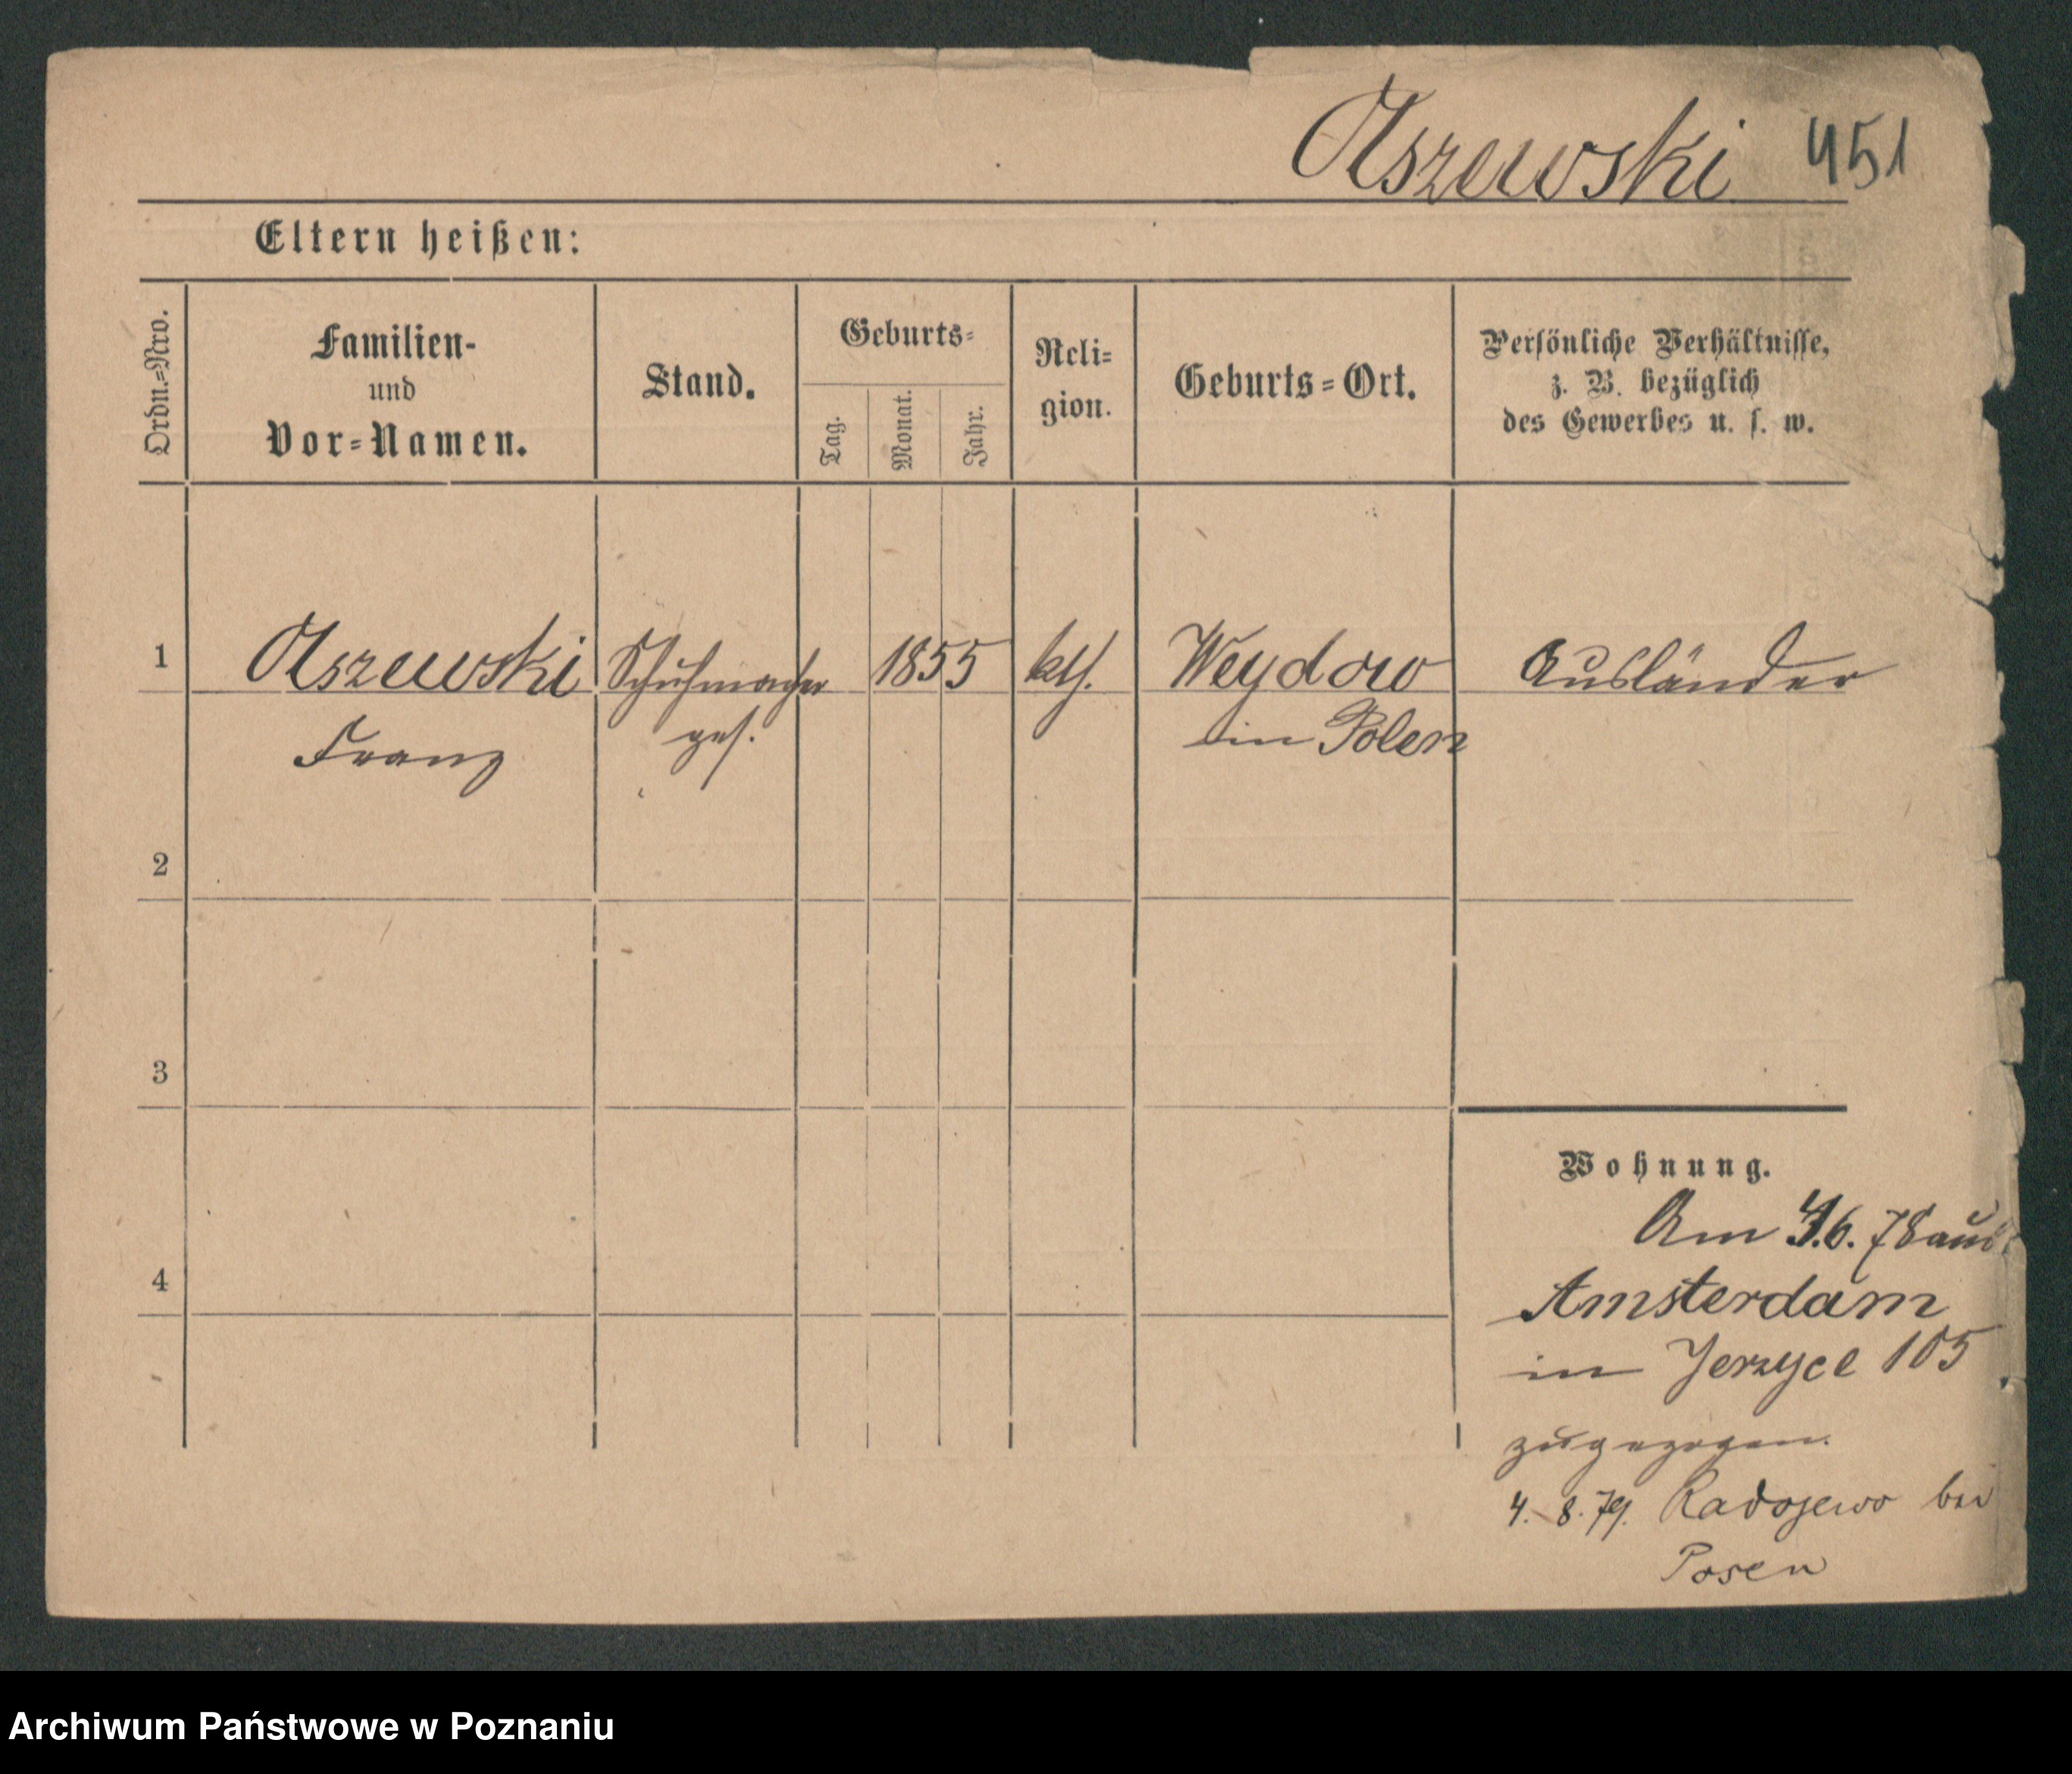 Olszewski 451
Eltern heißen:
Ordn.=Nro.
Familien-
und
Vor=Namen.
Stand.
Geburts=
Tag.
Monat.
Jahr.
Reli=
gion.
Geburts=Ort.
Persönliche Verhältnisse,
z. B. bezüglich
des Gewerbes u. s. w.
1 Olszewski Schuhmacher 1855 kth. Weydow Ausländer
Franz ges. in Polen
2
3
4
Wohnung.
Am 4.6.78 aus
Amsterdam
in Jerzyce 105
zugezogen.
4. 8. 79. Radojewo bei
Posen
Archiwum Państwowe w Poznaniu